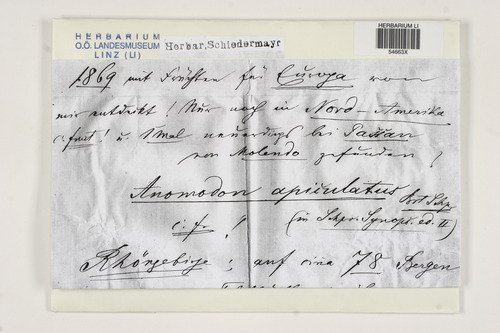 HERBARIUM
O.Ö. LANDESMUSEUM
LINZ (LI)
Herbar.Schiedermayr
HERBARIUM LI
54663X
1869 mit Früchten für Europa von
mir entdeckt! Nur noch in Nord-Amerika
c. fruct! u. 1mal neuerdings bei Passau
von Molendo gefunden!
Anomodon apiculatus Brt. Schp.
c. fr. ! (in Schpr. Synops. ed. II)
Rhöngebirge; auf circa 78 Bergen